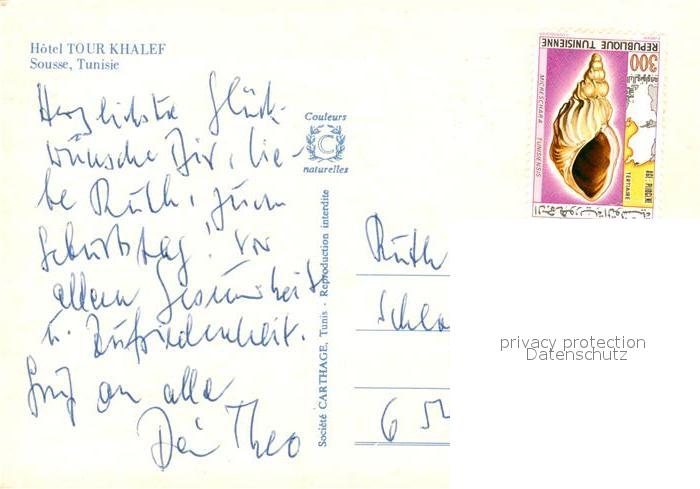 Hôtel TOUR KHALEF
Sousse, Tunisie
Herzlichste Glück-
wünsche Dir, lie-
be Ruth, zum
Geburtstag! Vor
allem Gesundheit
u. Zufriedenheit.
Gruß an alle
Dein Theo
Couleurs
C
naturelles
Société CARTHAGE, Tunis - Reproduction interdite
REPUBLIQUE TUNISIENNE
300
MICRESCHARA TUNISIENSIS
AGE: PLIOCENE
TERTIAIRE
الجمهورية التونسية
Ruth
Schlo
6 54
privacy protection
Datenschutz